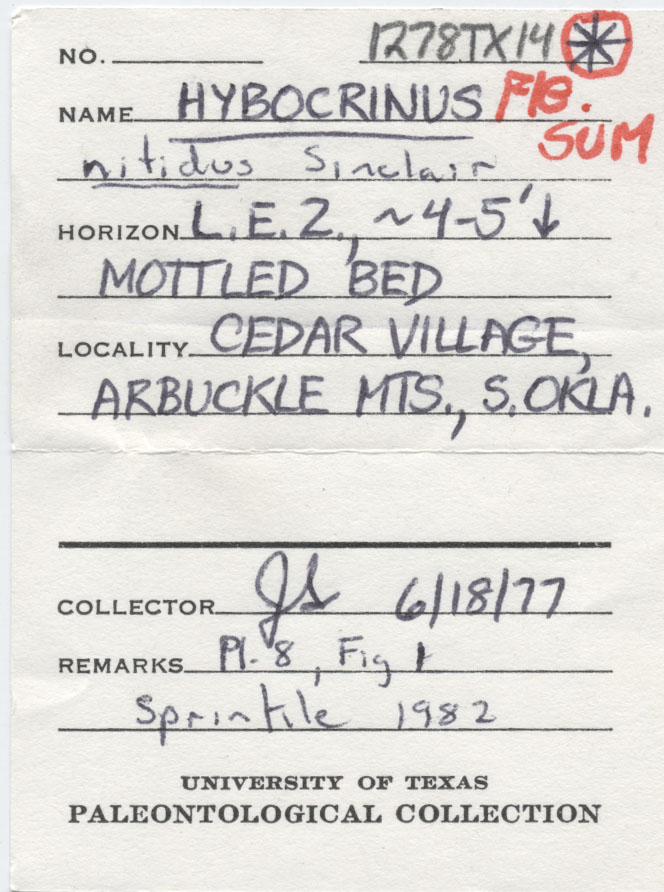 NO. 1278TX14
NAME HYBOCRINUS FIG.
SUM
nitidus Sinclair
HORIZON L.E.Z., ~4-5'↓
MOTTLED BED
LOCALITY CEDAR VILLAGE,
ARBUCKLE MTS., S. OKLA.
COLLECTOR JS 6/18/77
REMARKS Pl. 8, Fig 1
Sprinkle 1982
UNIVERSITY OF TEXAS
PALEONTOLOGICAL COLLECTION